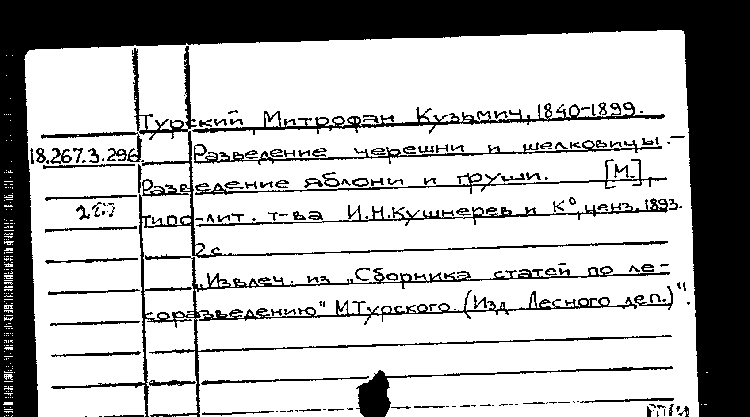 Турский, Митрофан Кузьмич, 1840-1899.
18.267.3.296 Разведение черешни и шелковицы.-
Разведение яблони и груши. [М.],
типо-лит. т-ва И.Н.Кушнерев и К°, ценз. 1893.
2 с.
„Извлеч. из „Сборника статей по ле-
соразведению" М.Турского. (Изд. Лесного деп.)".